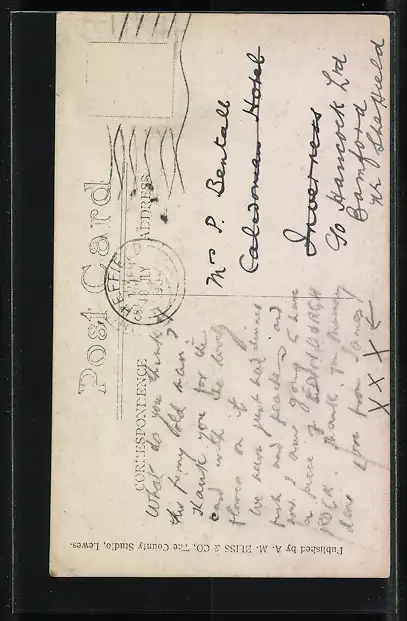 Post Card
CORRESPONDENCE
ADDRESS
SHEFFIELD
What do you think of
this funny old man?
Thank you for the
card with the lovely
flowers on it
We have just had dinner
fish and peas and
now I am going to have
a piece of EDINBURGH
ROCK. Thank you mummy
dear. Love from James
X X X
Mrs P. Bentall
Caledonian Hotel
Inverness
C/o Hancock Ltd
Bamford
Nr Sheffield
Published by A. M. BLISS & CO, The County Studio, Lewes.